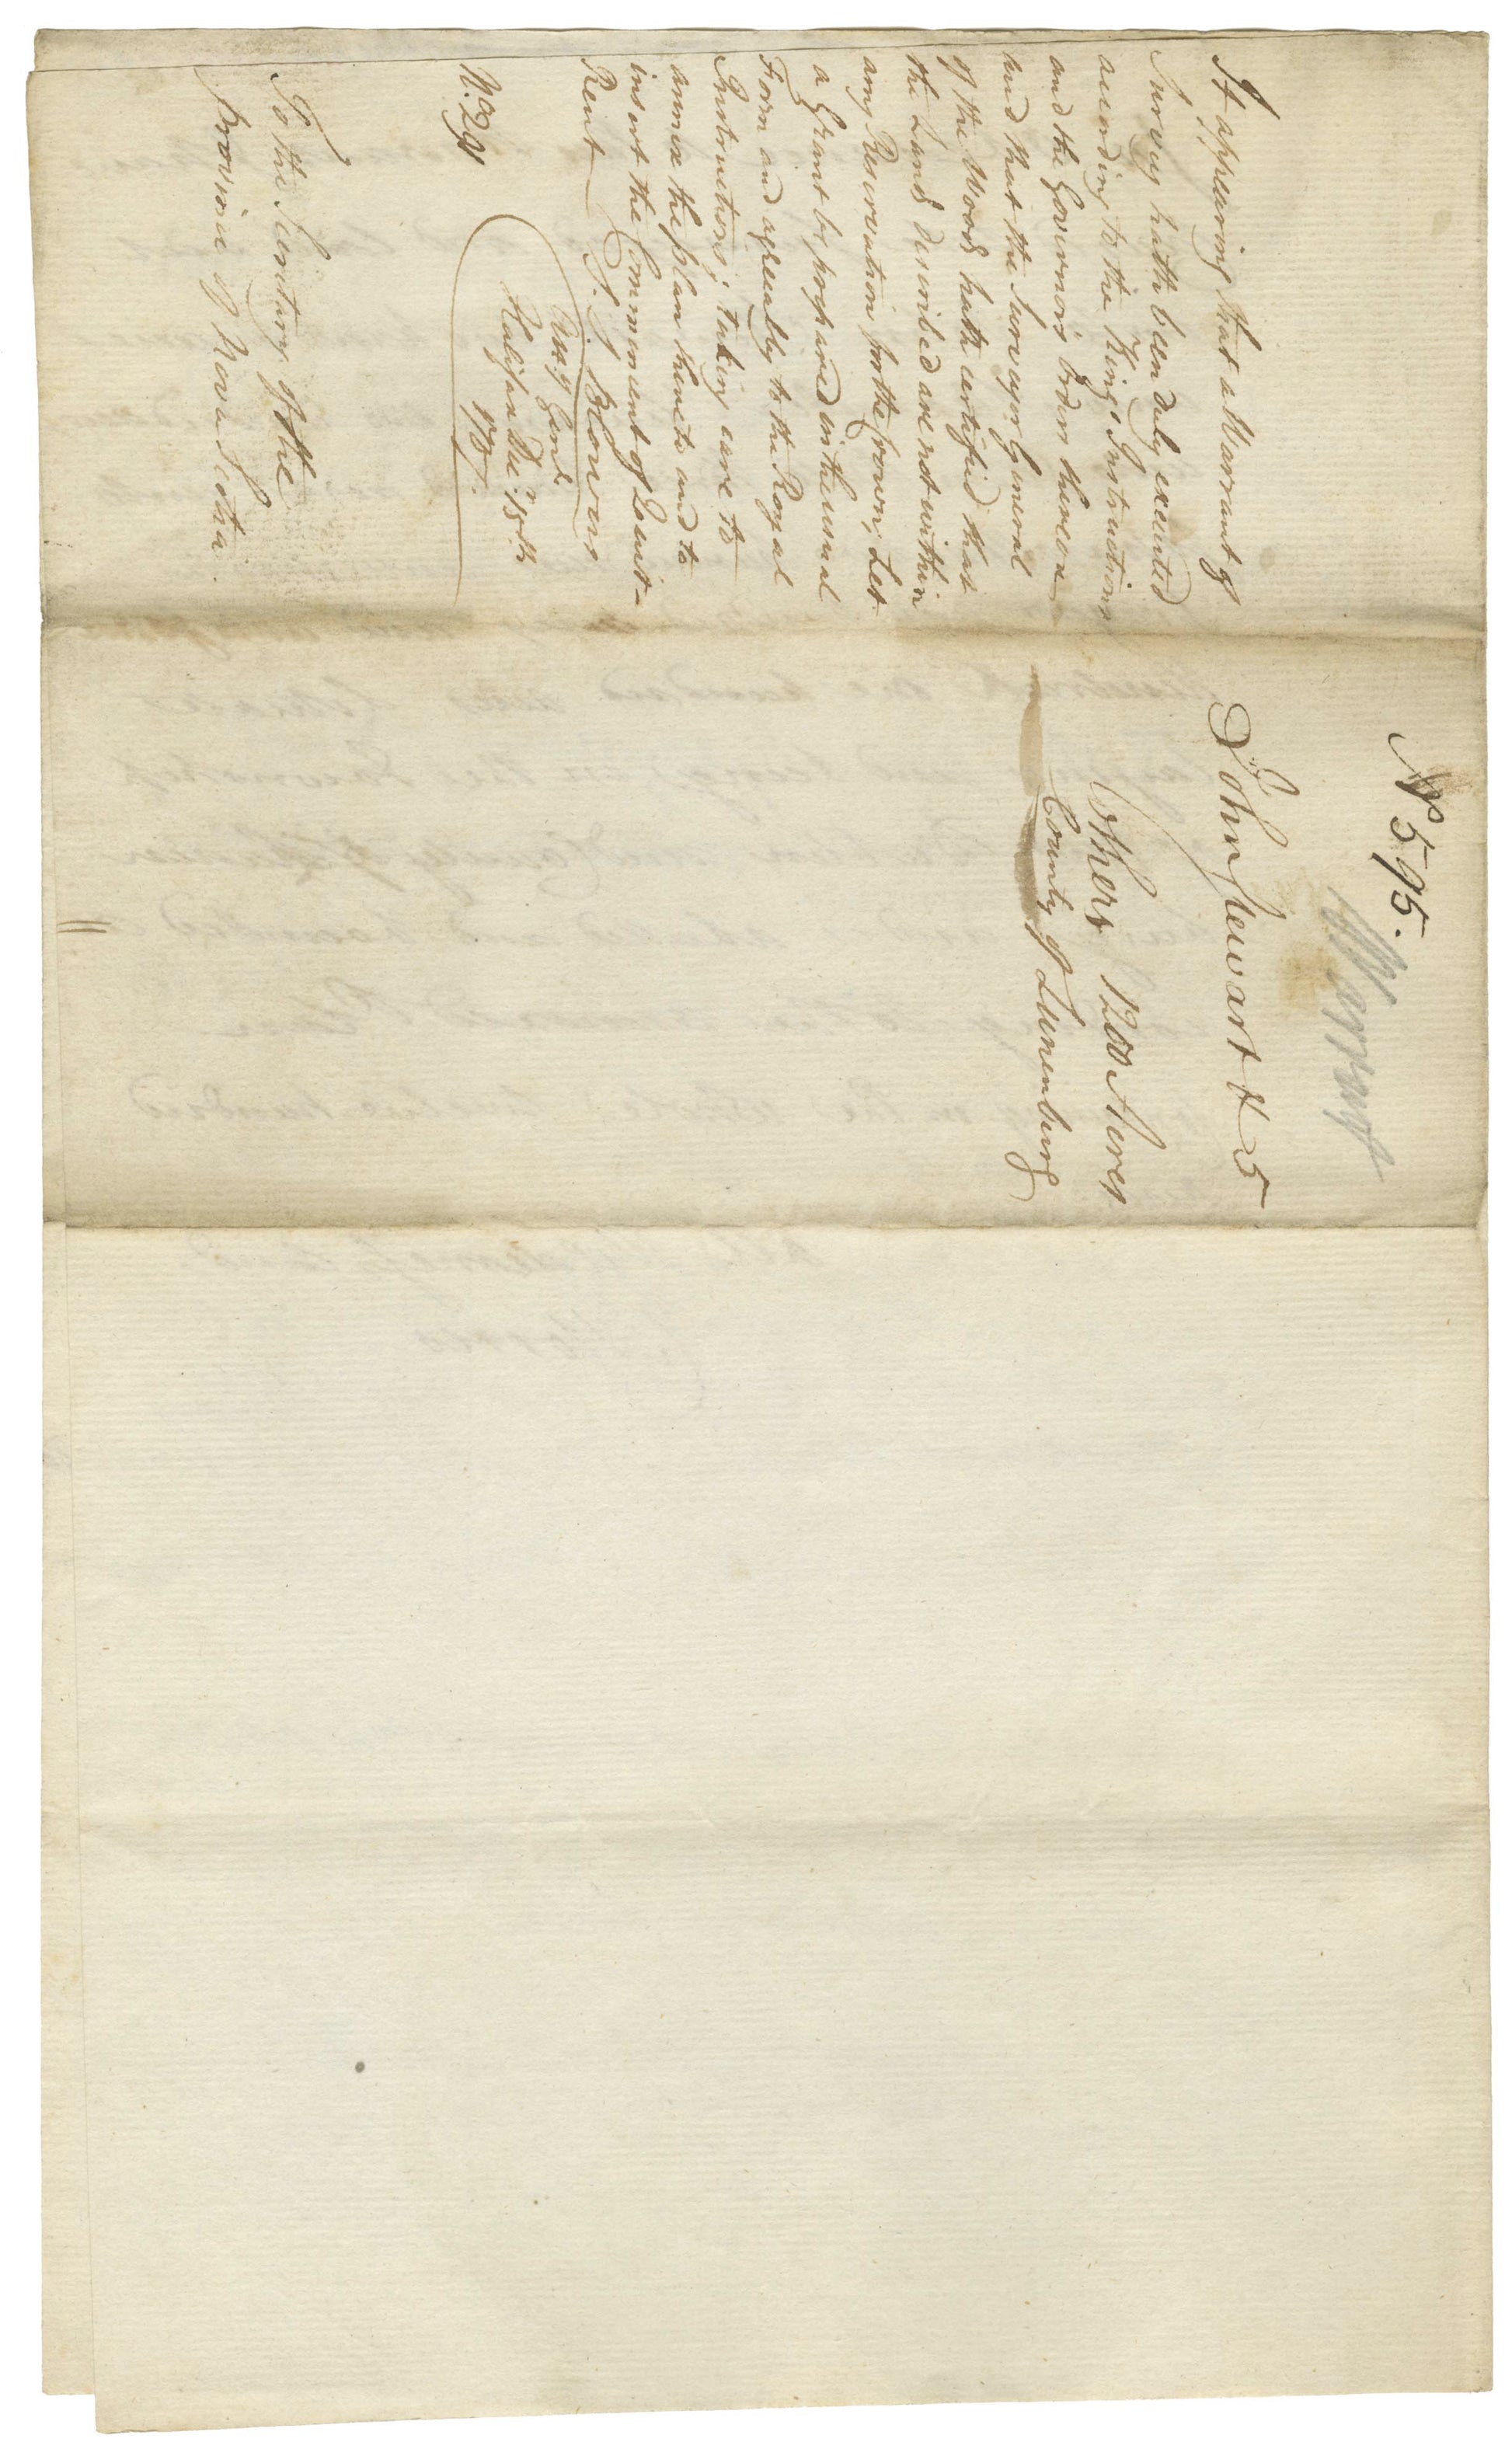 It appearing that a Warrant of
Survey hath been duly executed
according to the King's Instructions
and the Governor's Orders thereon
and that the Surveyor General
of the Woods hath certified that
the Lands described are not within
any Reservation for the Crown; Let
a Grant be prepared in the usual
Form and agreeably to the Royal
Instructions; taking care to
annex the Plan thereto and to
insert the Commencement of Quit-
Rent
S. S. Blowers
Atty Genl.
Halifax Decr. 15th
To the Secretary of the
Province of Nova Scotia.
No 595.
Warrant
John Stewart & 5
Others 1200 Acres
County of Lunenburg